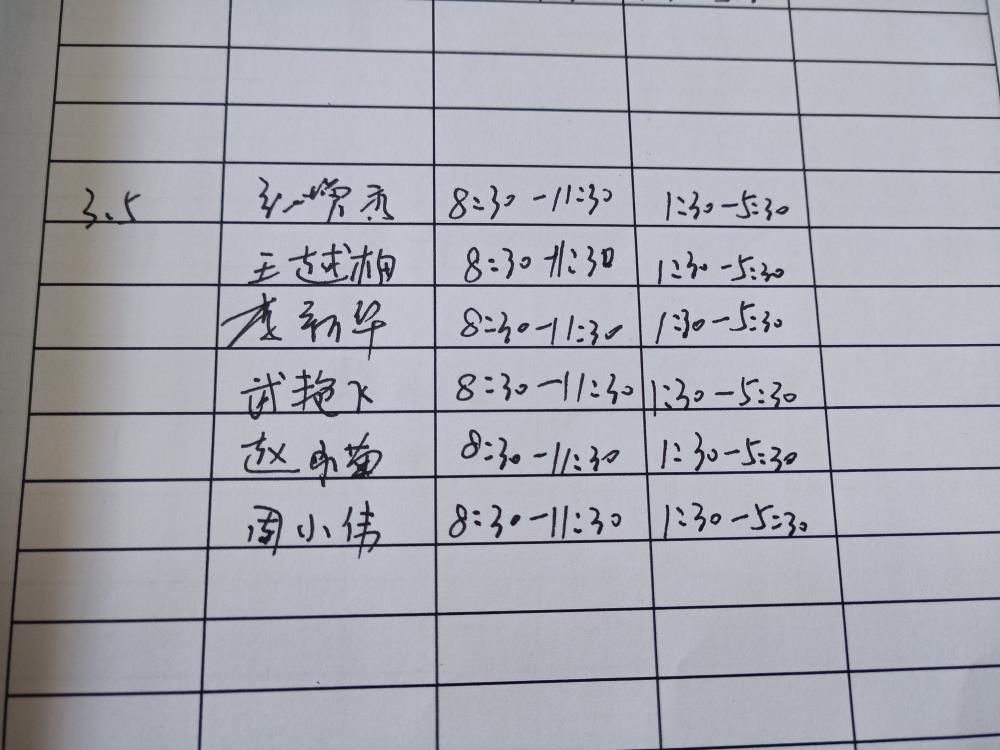 3.5 8:30-11:30 1:30-5:30
王越相 8:30-11:30 1:30-5:30
李新华 8:30-11:30 1:30-5:30
武艳飞 8:30-11:30 1:30-5:30
赵 菊 8:30-11:30 1:30-5:30
周小伟 8:30-11:30 1:30-5:30